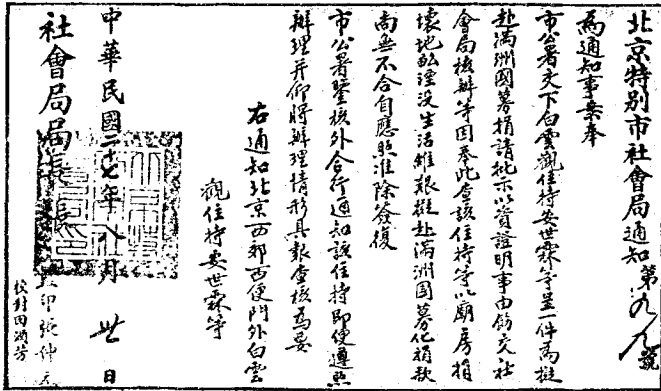 北京特别市社會局通知 第 號
為通知事案奉
市公署交下白雲觀住持安世霖等呈一件為擬
赴滿洲國募捐請批示以資證明事由飭交社
會局核辦等因奉此查該住持等以廟房損
壞地畝湮没生活維艱擬赴滿洲國募化捐款
尚無不合自應照准除簽復
市公署鑒核外合行通知該住持即便遵照
辦理并仰將辦理情形具報查核為要
右通知北京西郊西便門外白雲
觀住持安世霖等
中華民國二十七年八月 廿 日
社會局局長張
印張仲
校對田潤芳